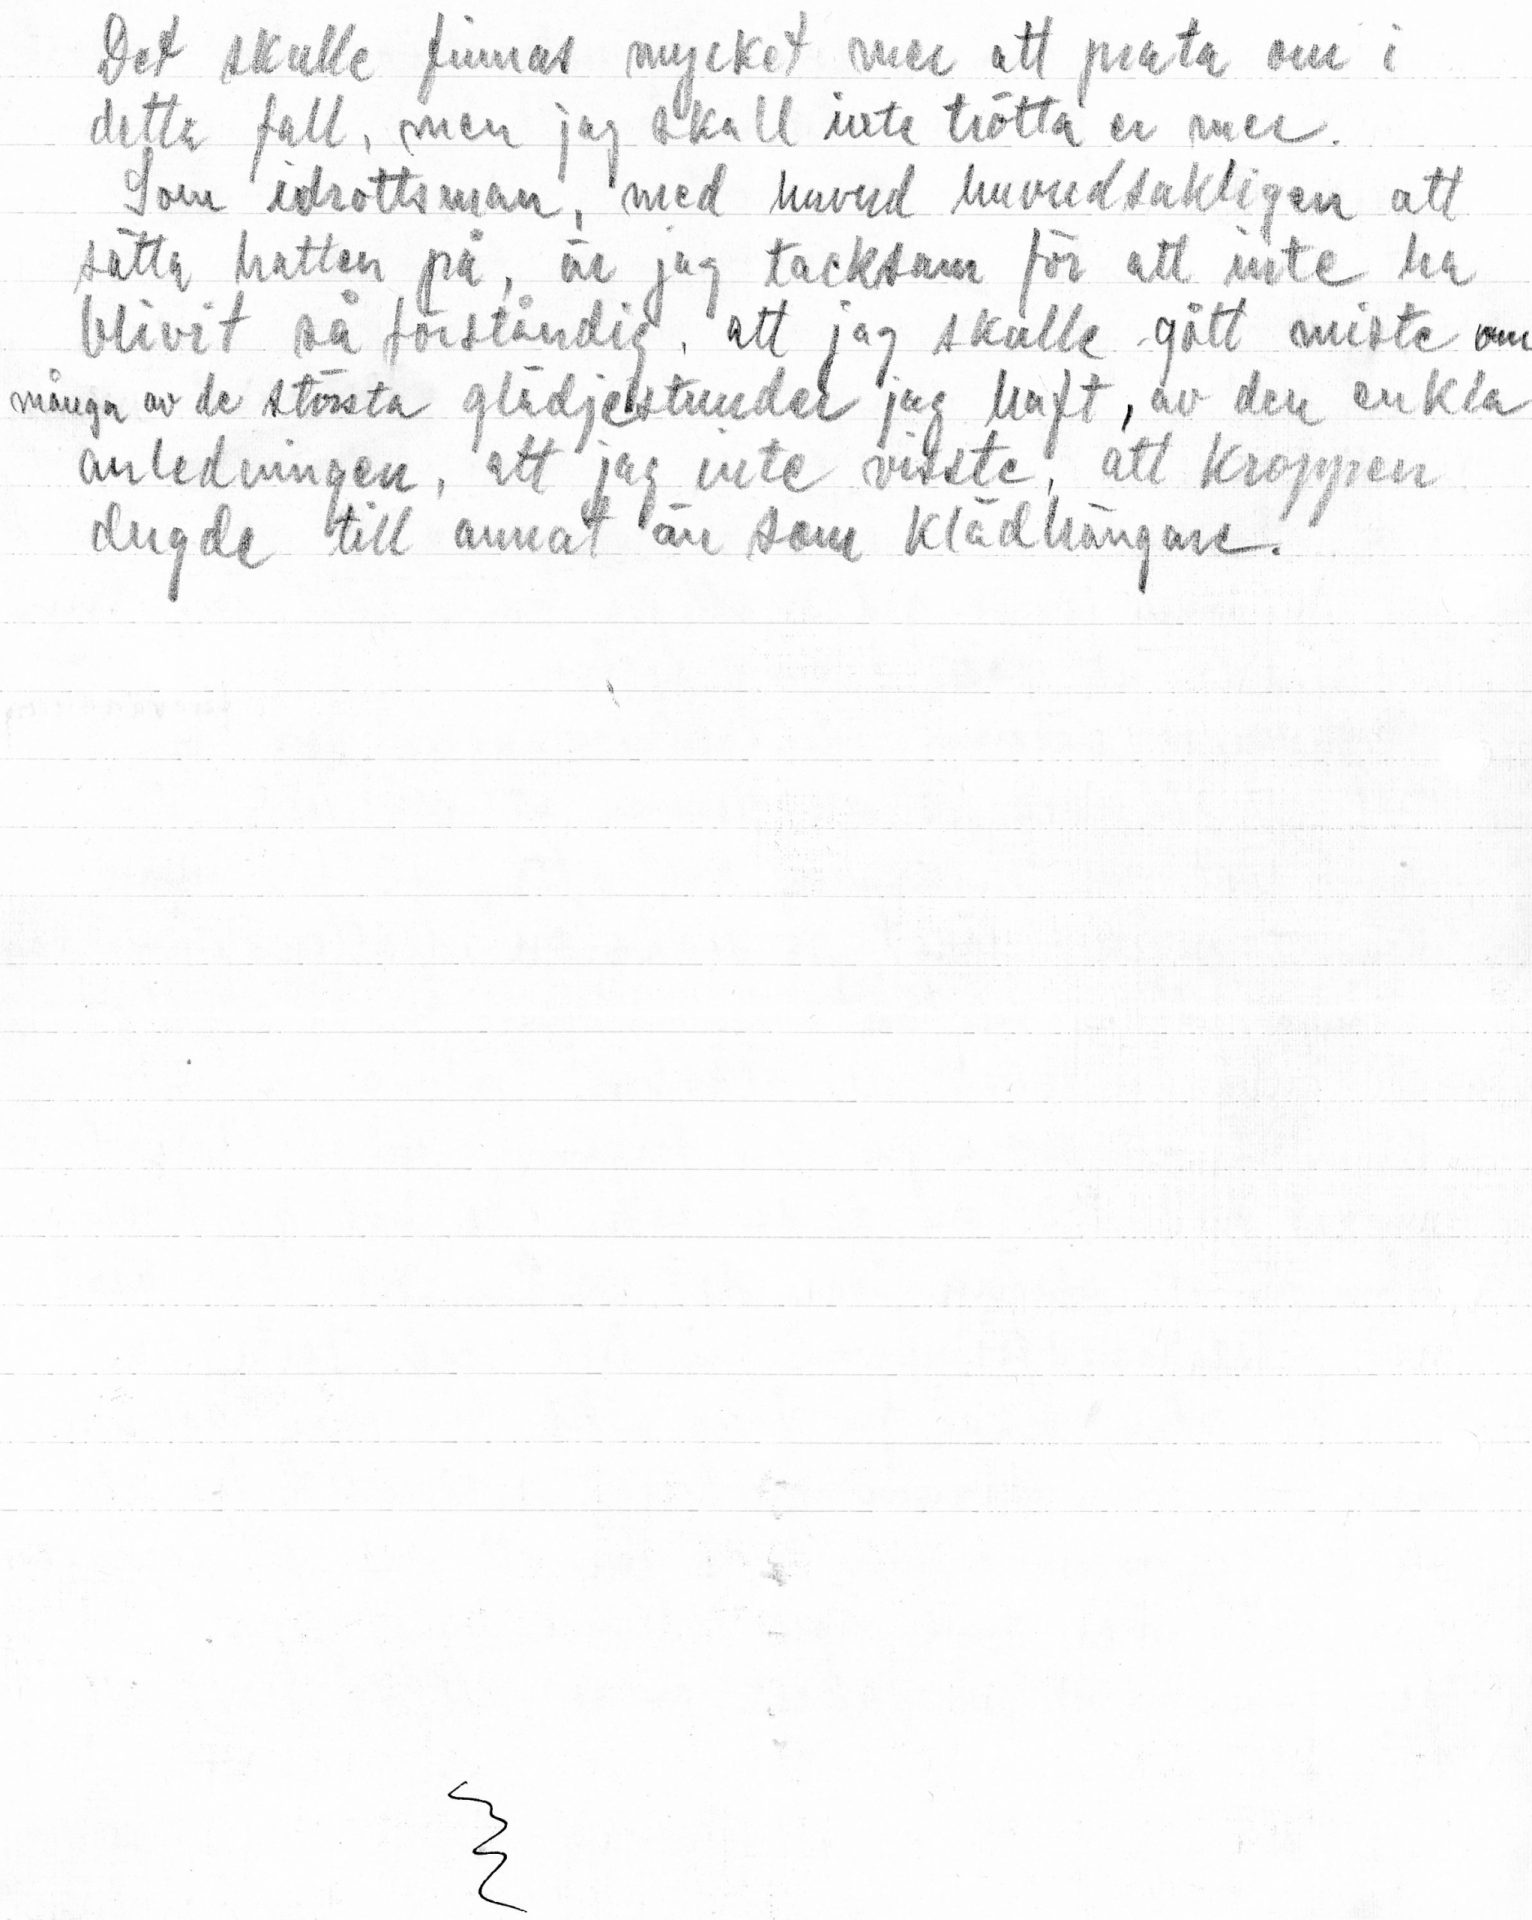 Det skulle finnas mycket mer att prata om i
detta fall, men jag skall inte trötta er mer.
Som idrottsman, med huvud huvudsakligen att
sätta hatten på, är jag tacksam för att inte ha
blivit så förståndig, att jag skulle gått miste om
många av de största glädjestunder jag haft, av den enkla
anledningen, att jag inte visste, att kroppen
dugde till annat än som klädhängare.